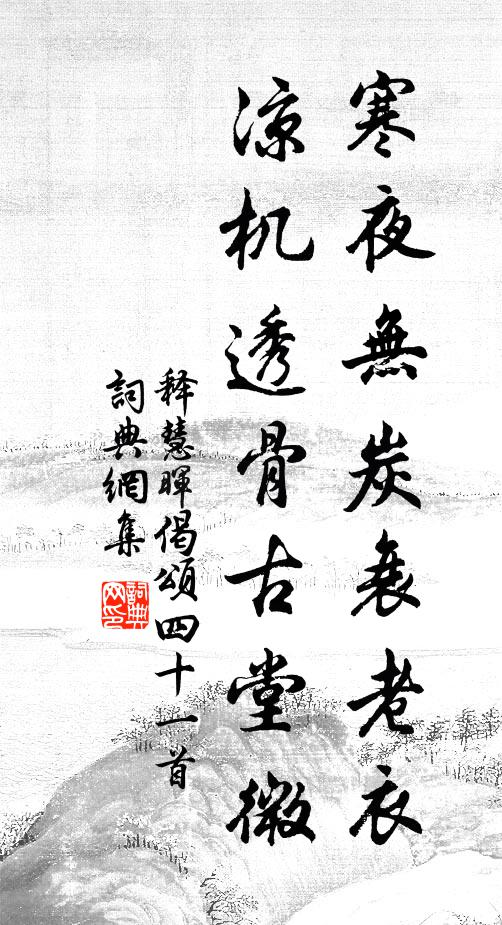 寒夜無炭衰老衣
凉机透骨古堂微
释慧暉偈頌四十一首
詞典網集
詞典网印